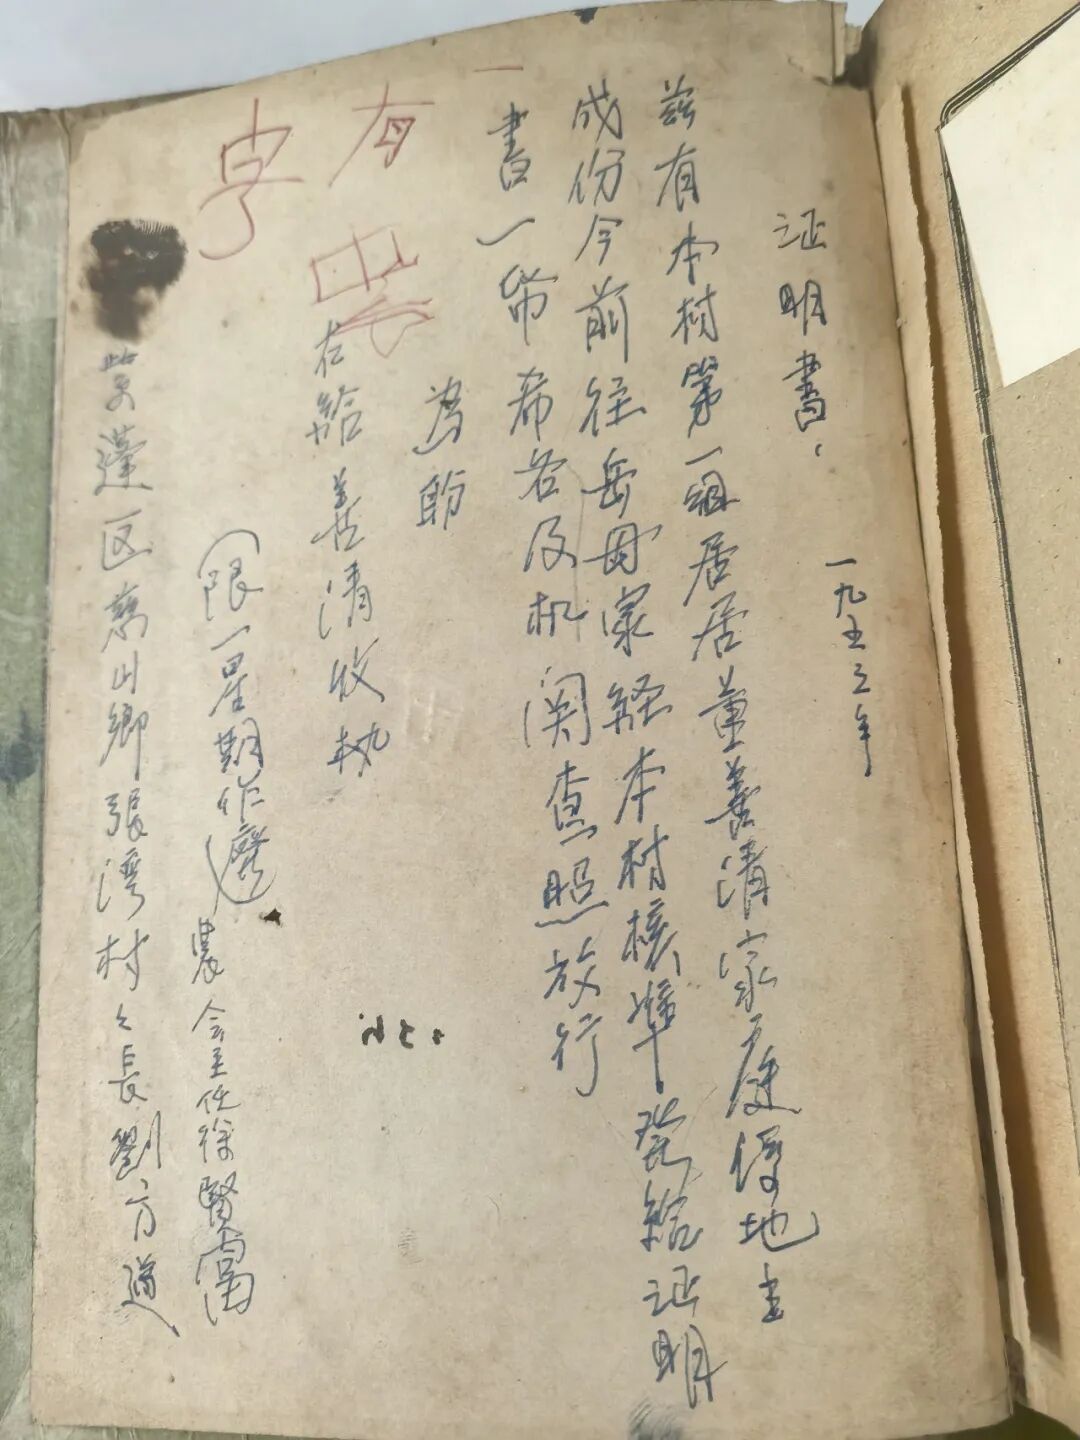 一九五三年
证明書、
兹有本村第一組居居董善清家庭係地主
成份今前往岳母家経本村核準発給证明
書一帋希各及机関查照放行
為盼
右給善清收执
(限一星期作廢)
農会主任徐賢富
紫蓬区萬山鄉張湾村々長劉方道
有
字